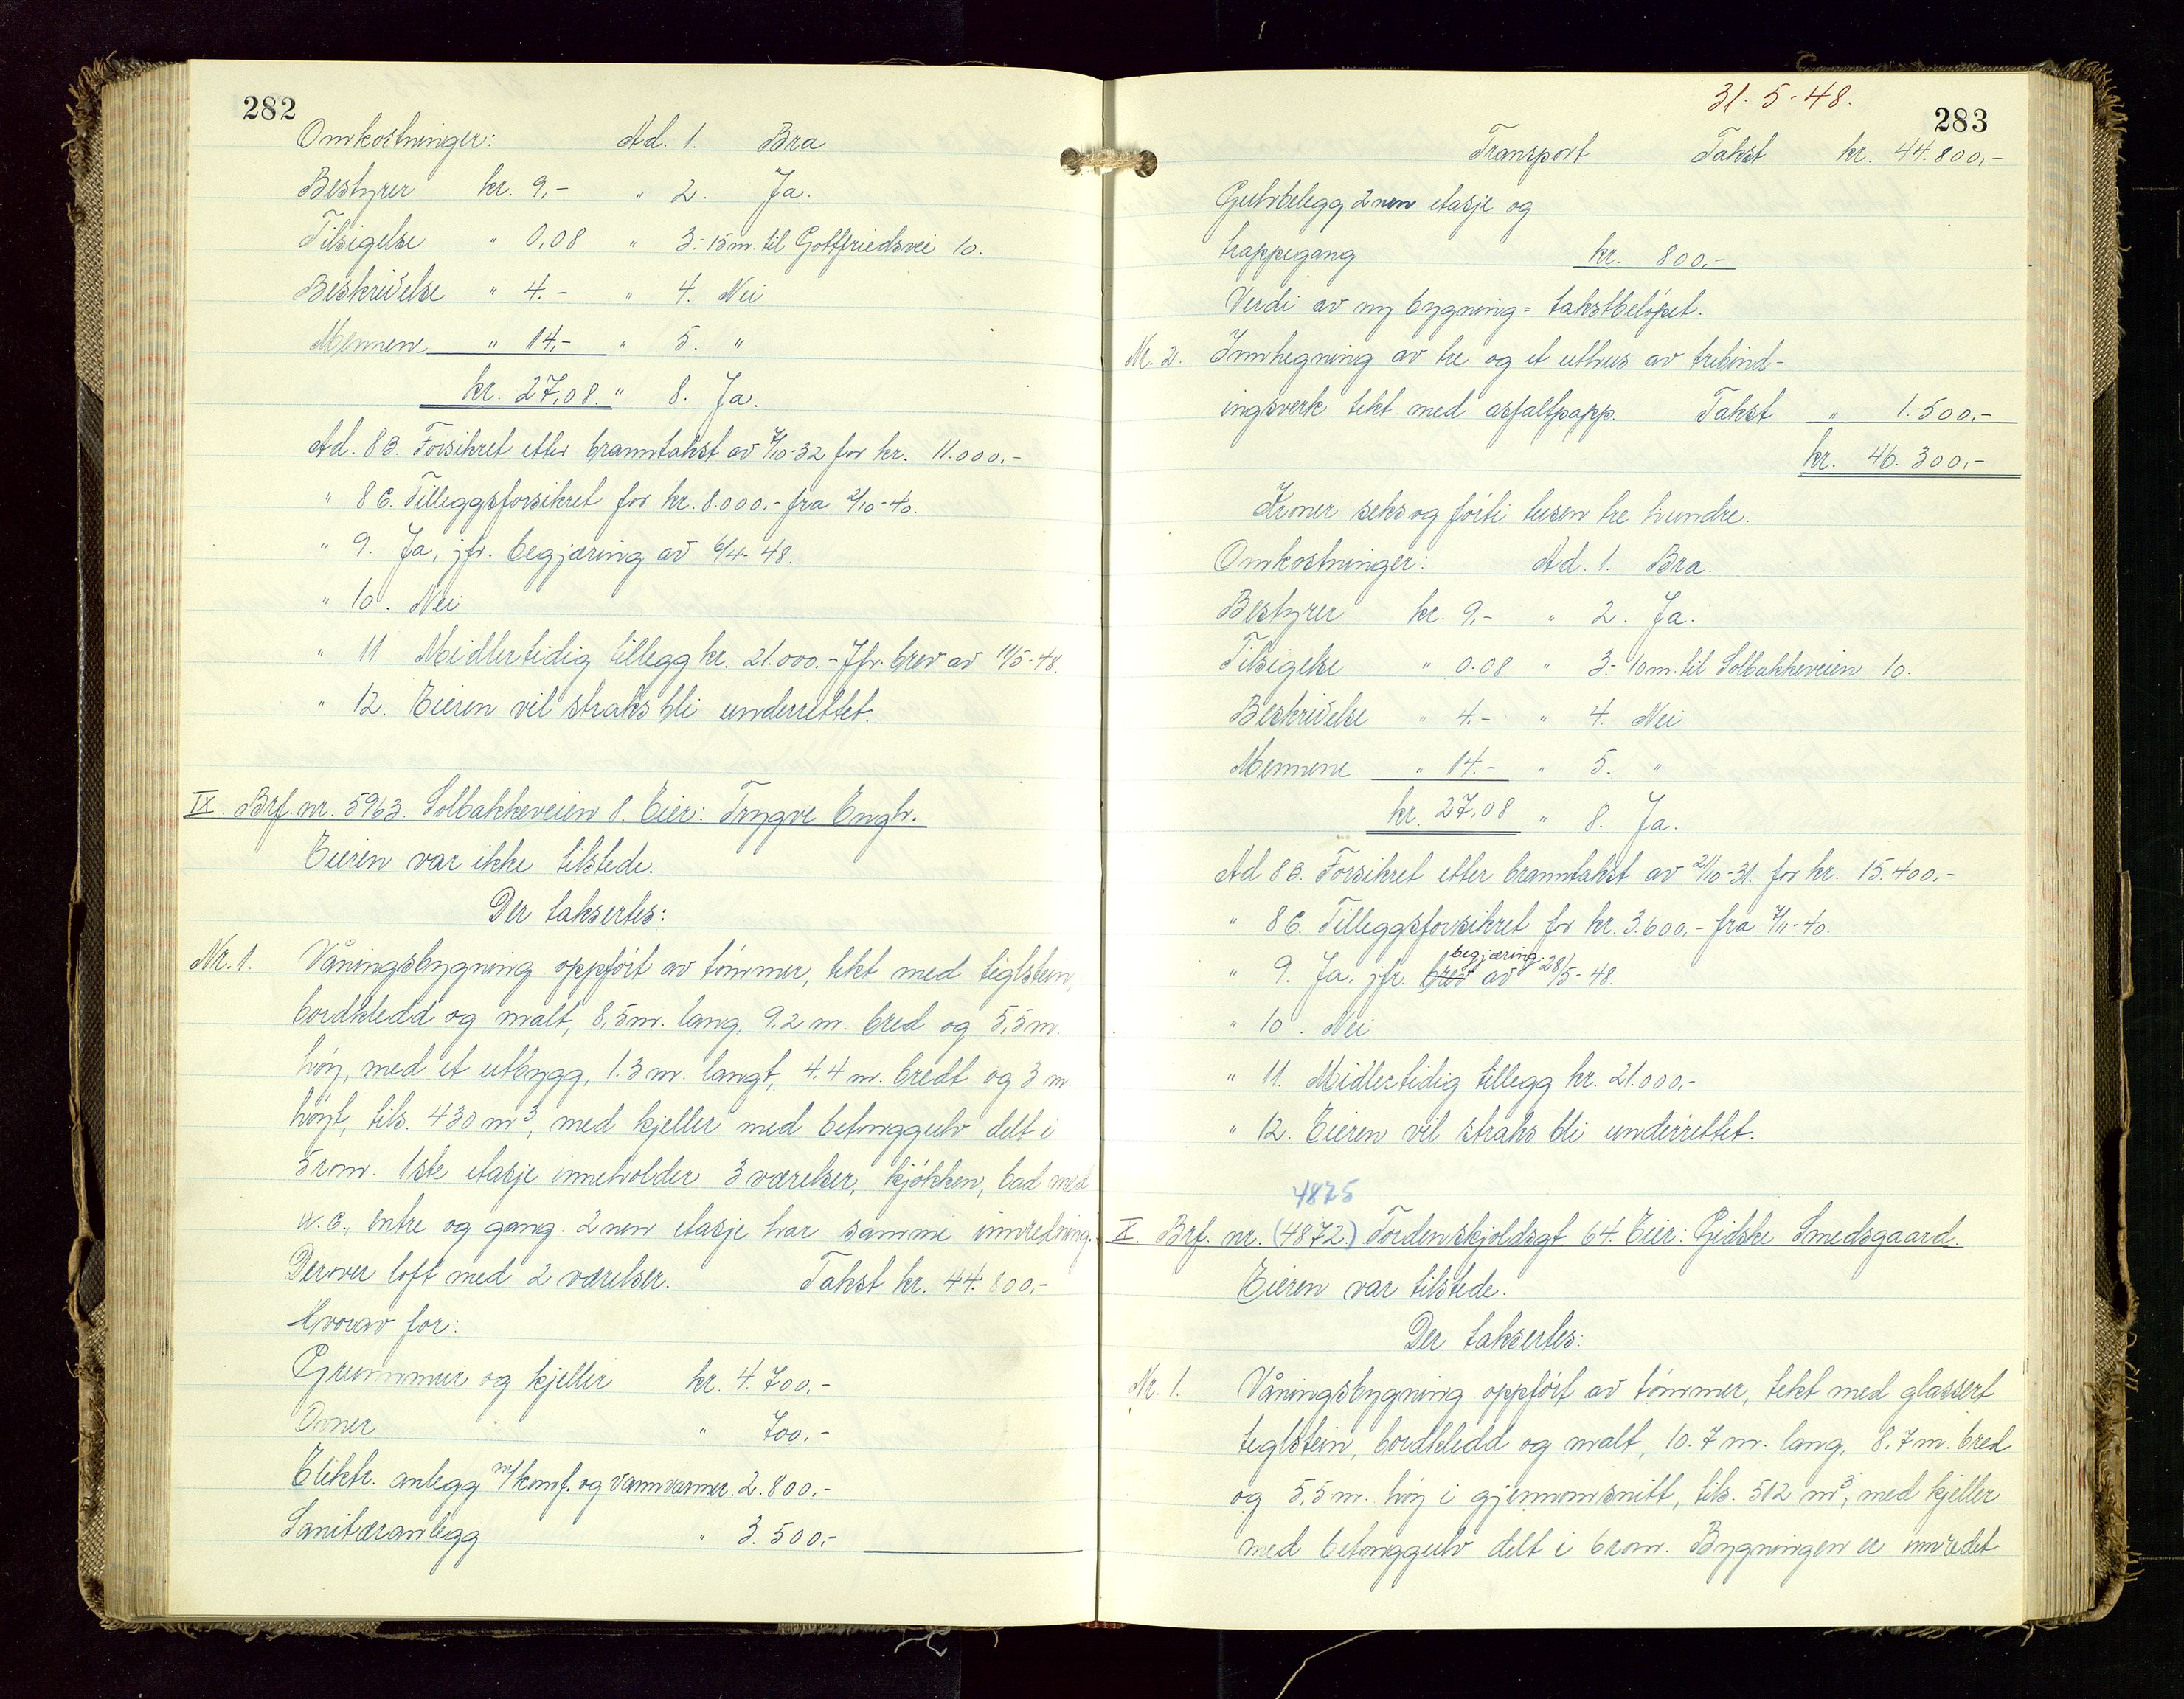 282
Omkostninger: Ad. 1. Bra
Bestyrer kr. 9,- " 2. Ja.
Tilsigelse " 0,08 " 3:- 15 m. til Gottfriedsvei 10.
Beskrivelse " 4.- " 4. Nei
Mennene " 14,- " 5. "
kr. 27,08. " 8. Ja.
Ad. 8B. Forsikret etter branntakst av 7/10-32 for kr. 11.000.-
" 8C. Tilleggsforsikret for kr. 8.000.- fra 2/10-40.
" 9. Ja, jfr. begjæring av 6/4-48.
" 10. Nei
" 11. Midlertidig tillegg kr. 21.000.- Jfr. brev av 11/5-48.
" 12. Eieren vil straks bli underrettet.
IX. Brf. nr. 5963. Solbakkeveien 8. Eier: Trygve Engh.
Eieren var ikke tilstede.
Der taksertes:
Nr. 1. Våningsbygning oppført av tømmer, tekt med teglstein,
bordkledd og malt, 8,5 m. lang, 9.2 m. bred og 5,5 m.
høy, med et utbygg, 1.3 m. langt, 4.4 m. bredt og 3 m.
høyt, tils. 430 m³, med kjeller med betonggulv delt i
5 rom. 1ste etasje inneholder 3 værelser, kjøkken, bad med
w.c., entre og gang. 2nen etasje har samme innredning.
Derover loft med 2 værelser. Takst kr. 44.800,-
Hvorav for:
Grunnmur og kjeller kr. 4.700.-
Ovner " 700.-
Elektr. anlegg m/komf. og vannvarmer. 2.800.-
Sanitæranlegg " 3.500.-
31. 5 - 48.
283
Transport Takst kr. 44.800,-
Gulvbelegg 2nen etasje og
trappegang kr. 800.-
Verdi av ny bygning = takstbeløpet.
Nr. 2. Innhegning av tre og et uthus av trebind-
ingsverk tekt med asfaltpapp. Takst " 1.500.-
kr. 46.300.-
Kroner seks og førti tusen tre hundre.
Omkostninger: Ad. 1. Bra.
Bestyrer kr. 9,- " 2. Ja.
Tilsigelse " 0.08 " 3:- 10 m. til Solbakkeveien 10.
Beskrivelse " 4.- " 4. Nei
Mennene " 14.- " 5. "
kr. 27,08 " 8. Ja.
Ad 8B. Forsikret etter branntakst av 21/10-31. for kr. 15.400.-
" 8C. Tilleggsforsikret for kr. 3.600,- fra 7/11-40.
" 9. Ja, jfr. brev begjæring av 28/5-48.
" 10. Nei
" 11. Midlertidig tillegg kr. 21.000.-
" 12. Eieren vil straks bli underrettet.
4875
X. Brf. nr. (4872) Tordenskjoldsgt 64. Eier: Gidske Smedsgaard.
Eieren var tilstede.
Der taksertes:
Nr. 1. Våningsbygning oppført av tømmer, tekt med glassert
teglstein, bordkledd og malt, 10.7 m. lang, 8.7 m. bred
og 5,5 m. høy i gjennomsnitt, tils. 512 m³, med kjeller
med betonggulv delt i 6 rom. Bygningen er innredet